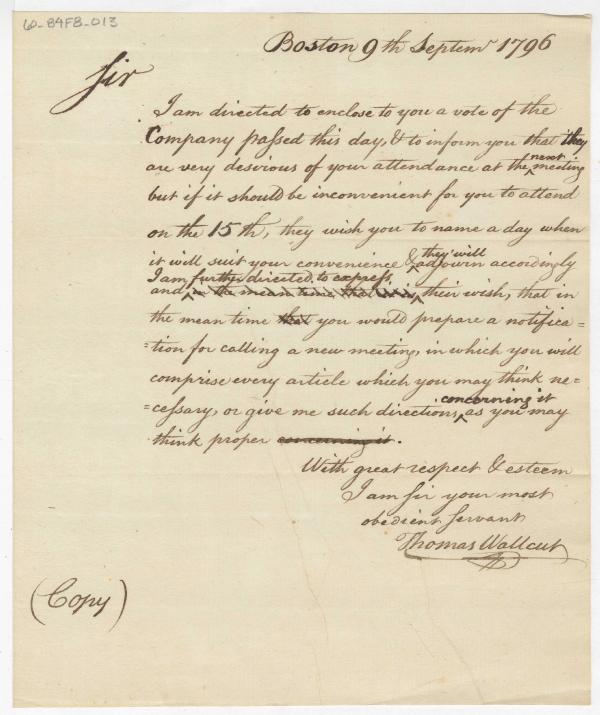 60-B4F8-013
Boston 9th Septemr 1796
Sir
I am directed to enclose to you a vote of the
Company passed this day, & to inform you that they
are very desirous of your attendance at the next meeting
but if it should be inconvenient for you to attend
on the 15th, they wish you to name a day when
it will suit your convenience & they will adjourn accordingly
and I am further directed to express in the mean time that their wish, that in
the mean time that you would prepare a notifica=
=tion for calling a new meeting, in which you will
comprise every article which you may think ne=
=cessary, or give me such directions concerning it as you may
think proper concerning it.
With great respect & esteem
I am Sir your most
obedient Servant
Thomas Wallcut
(Copy)